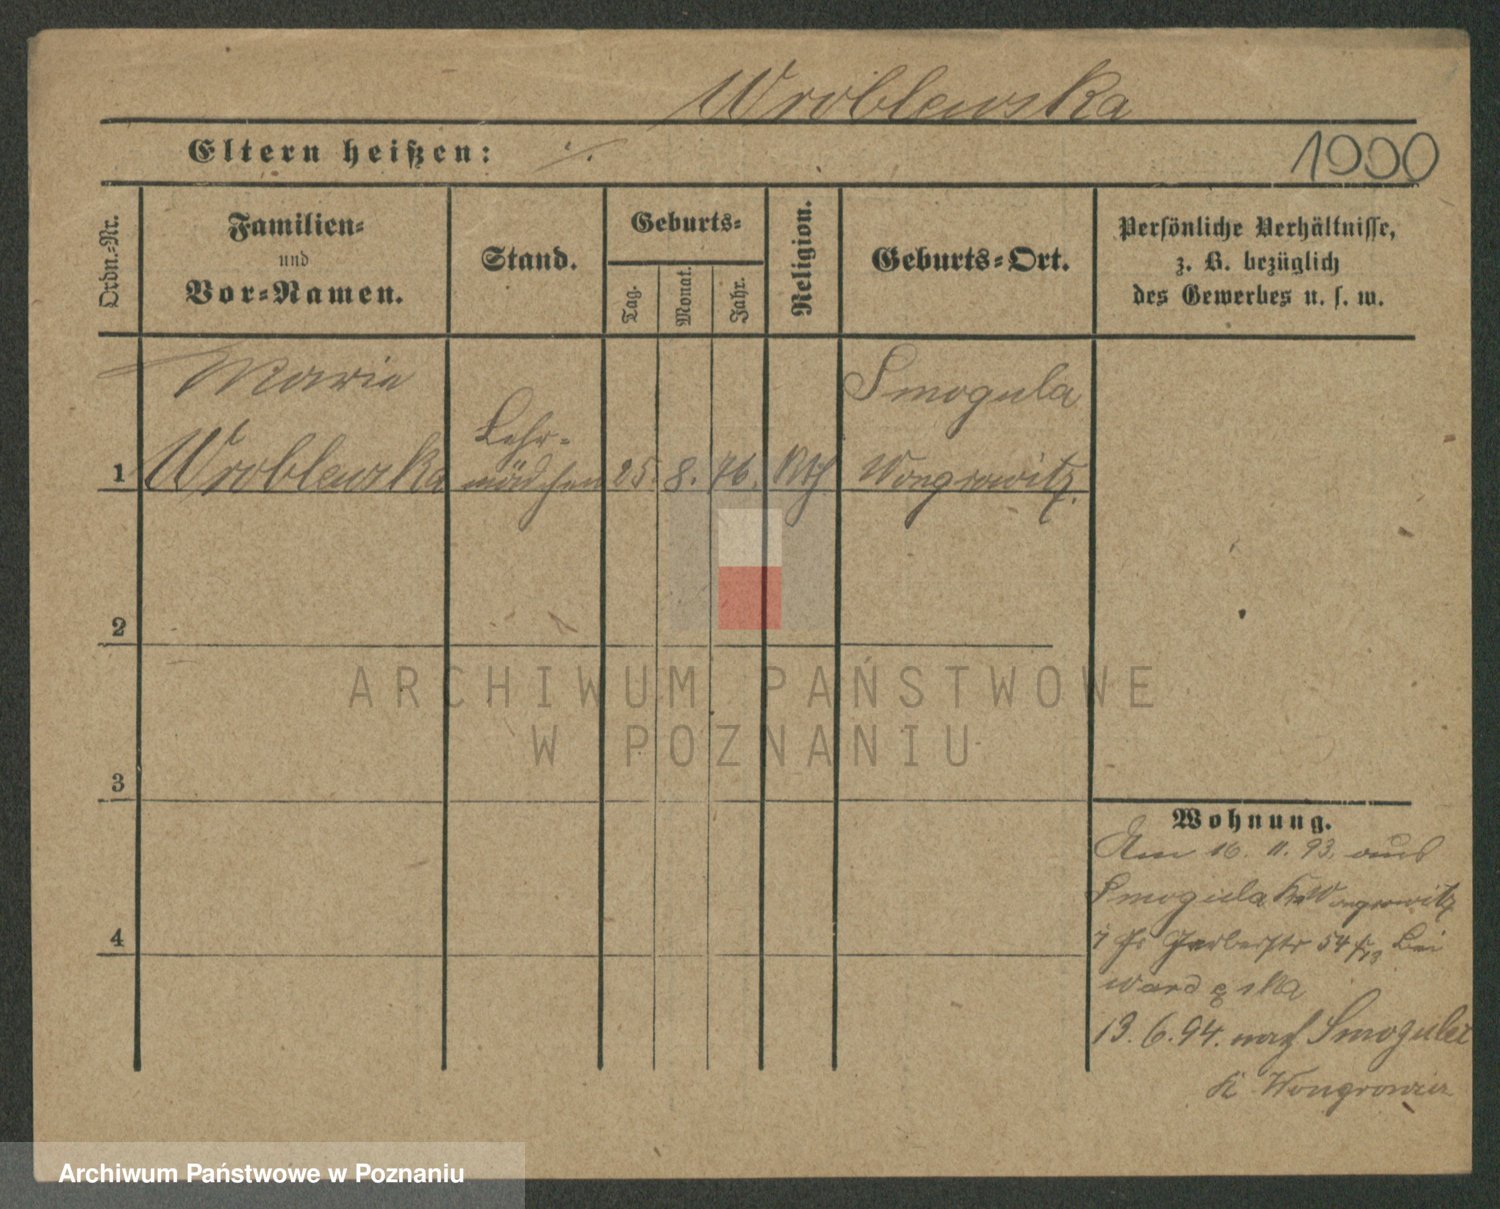 Wroblewska
Eltern heißen: ·/.
1900
Ordn.-Nr.
Familien-
und
Vor-Namen.
Stand.
Geburts-
Tag.
Monat.
Jahr.
Religion.
Geburts-Ort.
Persönliche Verhältnisse,
z. B. bezüglich
des Gewerbes u. s. w.
Marie
Smogula
Lehr-
1 Wroblewska mädchen 25. 8. 76. Kth Wongrowitz.
2
ARCHIWUM PAŃSTWOWE
W POZNANIU
3
Wohnung.
Am 16. 11. 93. aus
Smogula Kr Wongrowitz
Gerberstr 54 bei
13. 6. 94. nach Smogulec
K Wongrowitz
4
Archiwum Państwowe w Poznaniu